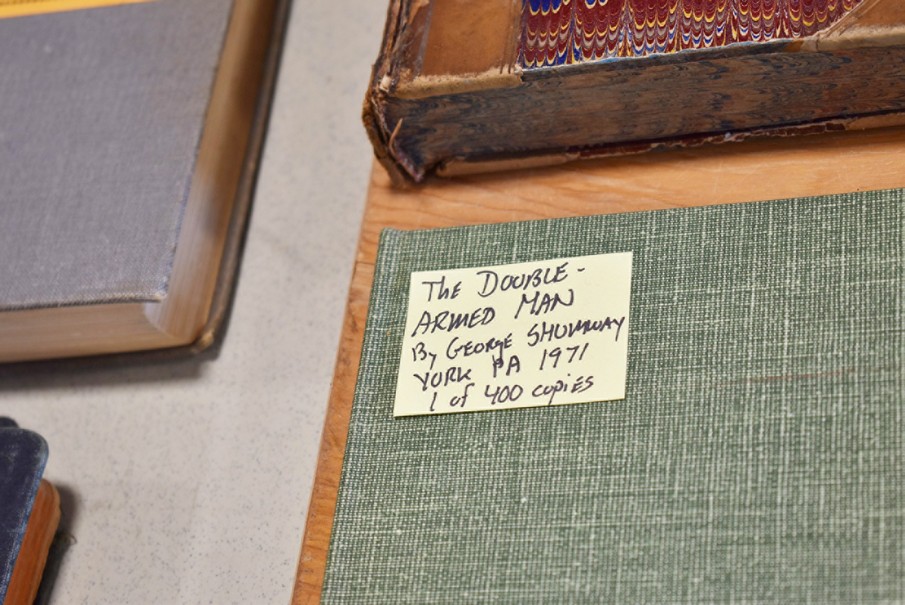 The DOUBLE-
ARMED MAN
By GEORGE SHUMWAY
YORK PA 1971
1 of 400 copies